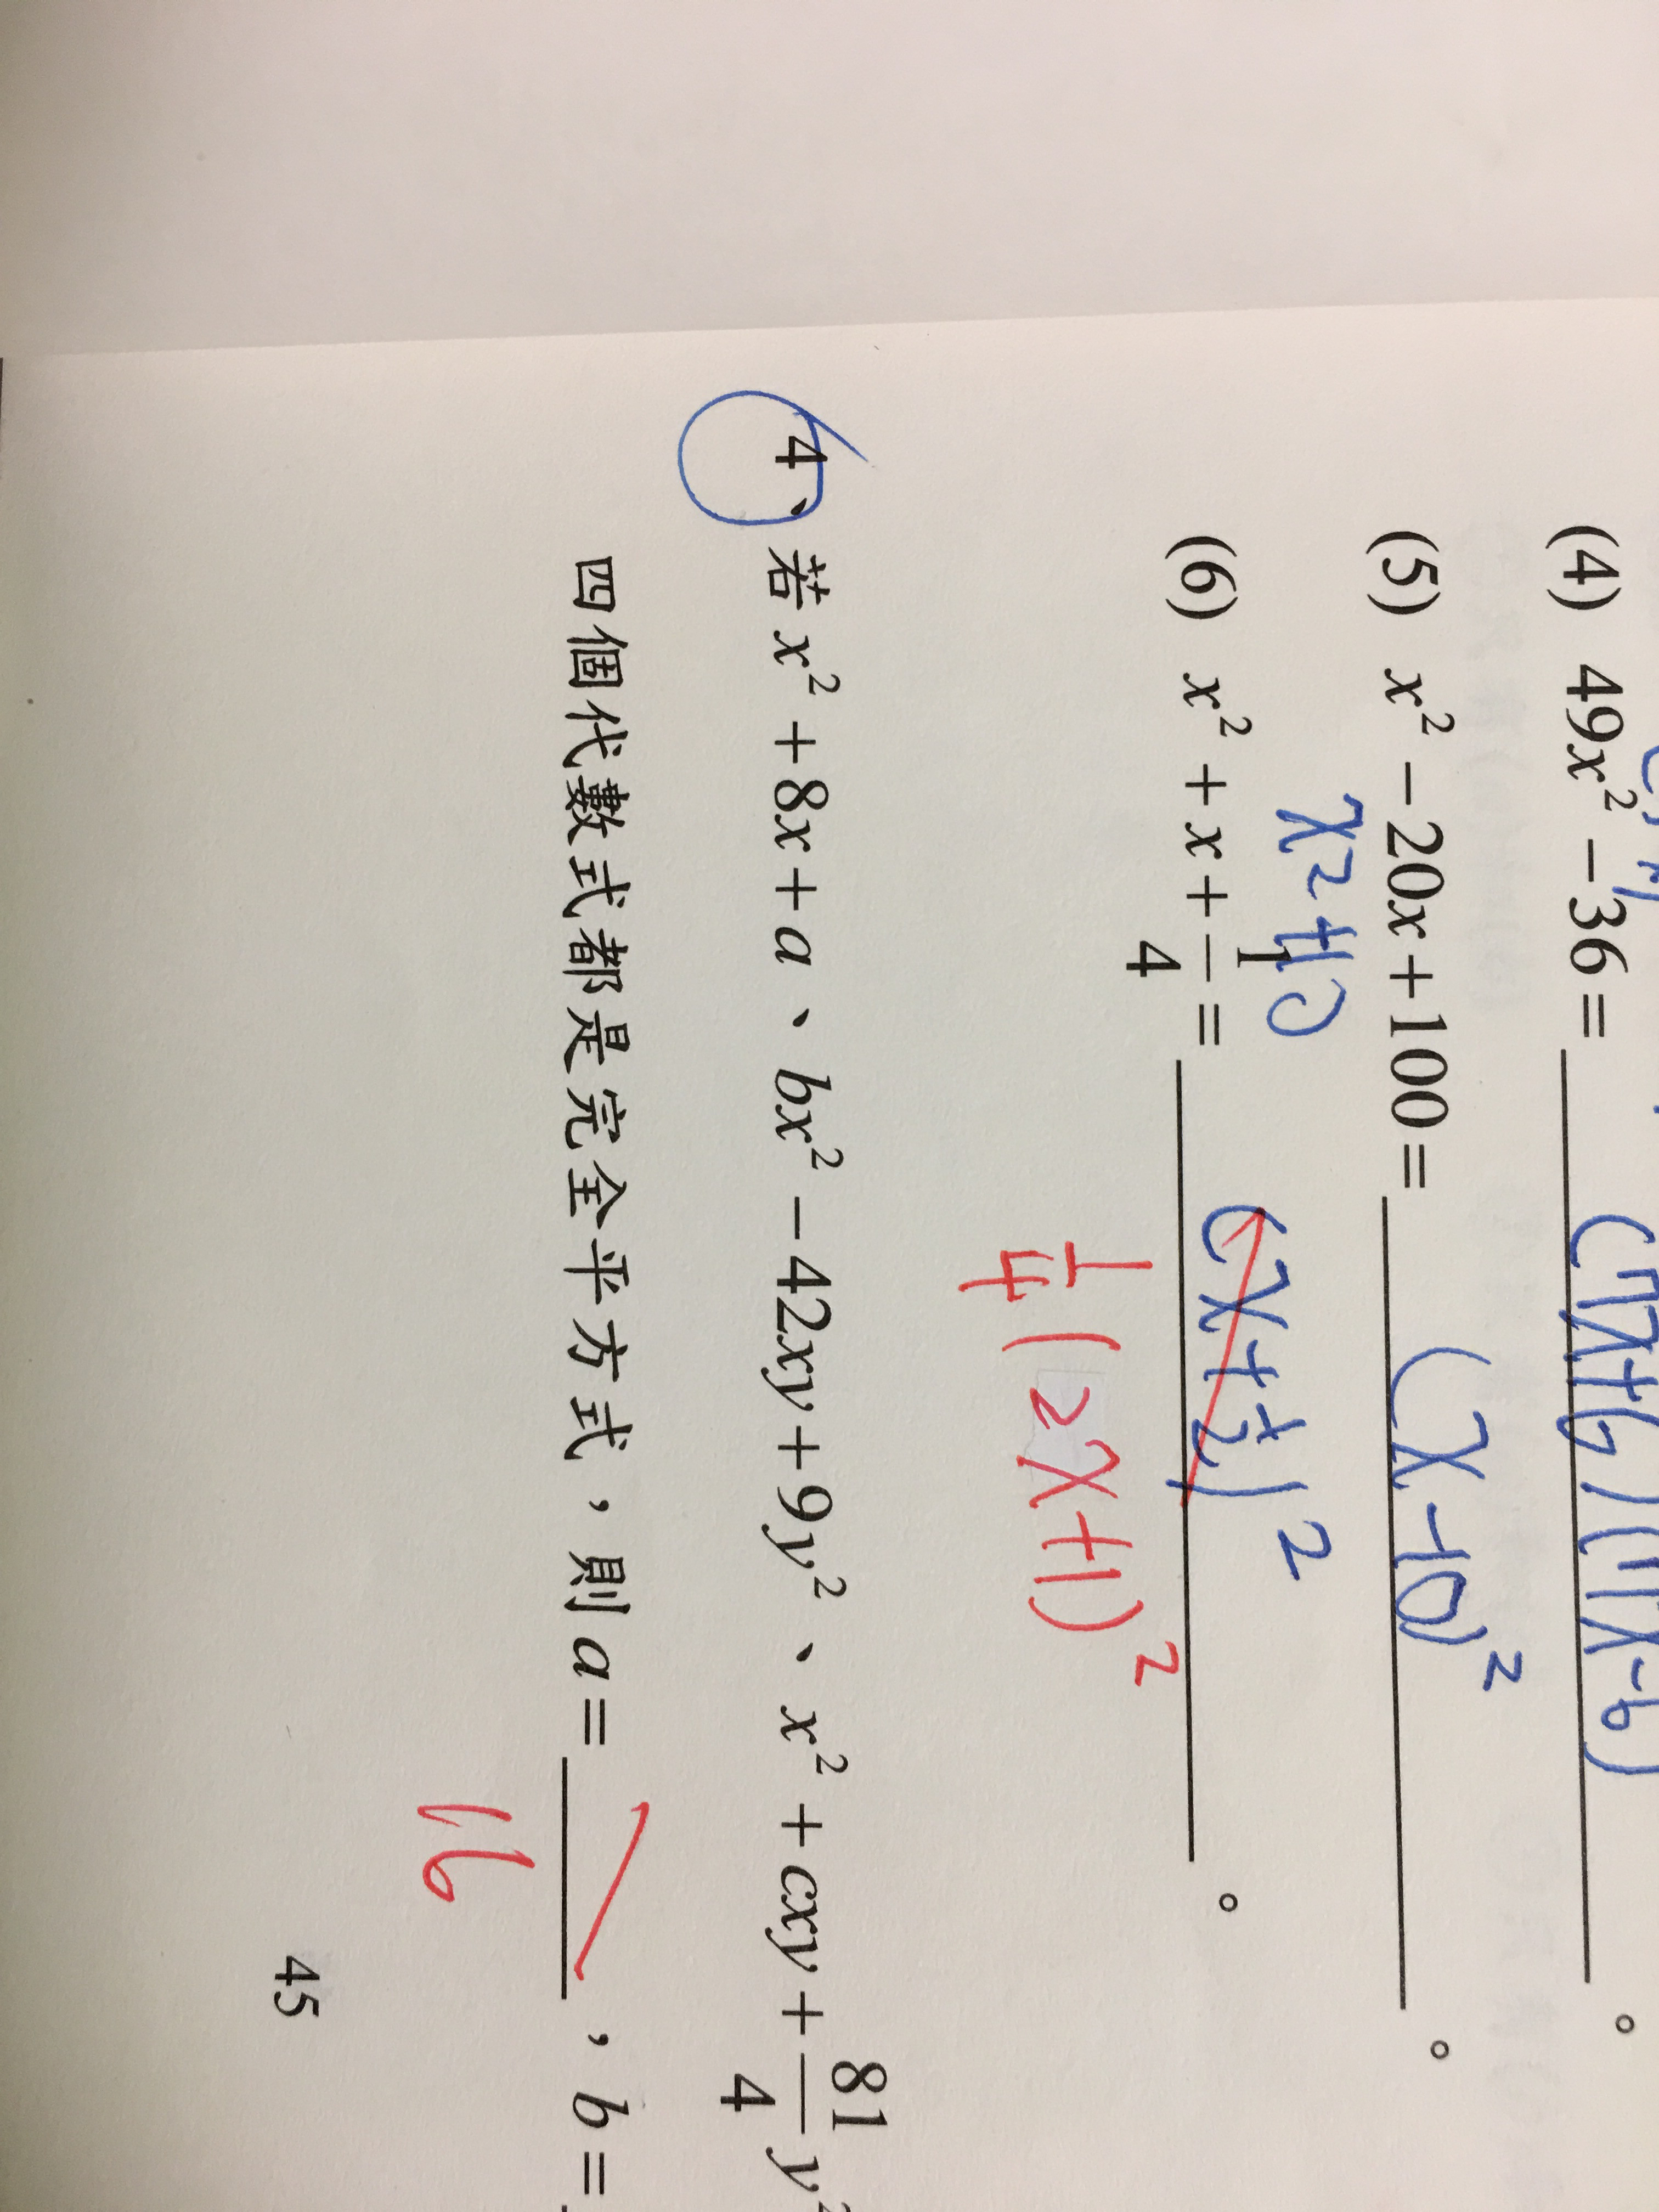 (4) 49x² − 36 = (7x+6)(7x-6) 。
(5) x² − 20x + 100 = (x-10)² 。
x²+10
(6) x² + x + 1/4 = (x+1/2)² 。
1/4(2x+1)²
4、若 x² + 8x + a、bx² − 42xy + 9y²、x² + cxy + 81/4 y²
四個代數式都是完全平方式，則 a = ，b =
16
45